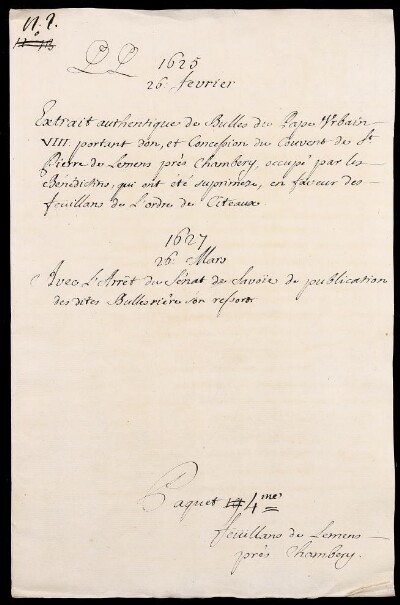 n. 2.
PP 1625
26. fevrier
Extrait authentique des Bulles du Pape Urbain
VIII. portant don, et Concession du Couvent de St.
Pierre de Lemens près Chambery, occupé par les
Bénédictins, qui ont été suprimés, en faveur des
feuillans de l'ordre de Citeaux
1627
26. Mars
Avec L'Arrêt du Sénat de Savoie de publication
des dites Bulles rière son ressort
Paquet 4me
feuillans de Lemens
près Chambery.